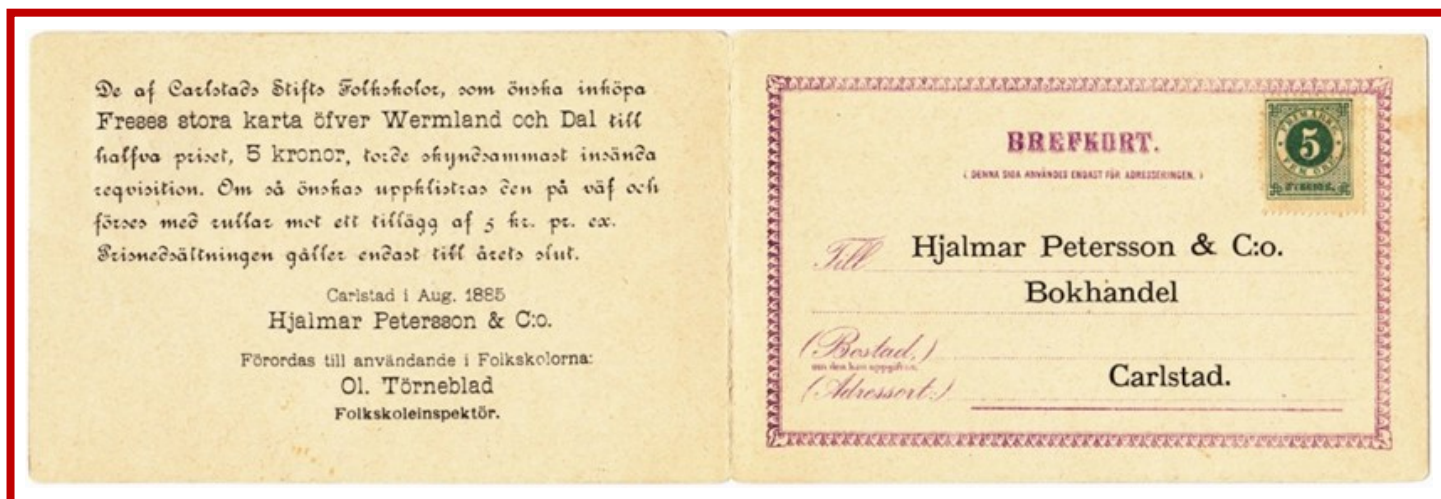 De af Carlstads Stifts Folkskolor, som önska inköpa
Freses stora karta öfver Wermland och Dal till
halfva priset, 5 kronor, torde skyndsammast insända
reqvisition. Om så önskas uppklistras den på väf och
förses med rullar mot ett tillägg af 5 kr. pr. ex.
Prisnedsättningen gäller endast till årets slut.
Carlstad i Aug. 1885
Hjalmar Petersson & C:o.
Förordas till användande i Folkskolorna:
Ol. Törneblad
Folkskoleinspektör.
BREFKORT.
( DENNA SIDA ANVÄNDES ENDAST FÖR ADRESSERINGEN. )
FRIMÄRKE
5
FEM ÖRE
SVERIGE.
Till Hjalmar Petersson & C:o.
Bokhandel
(Bostad,)
om den kan uppgifvas.
(Adressort:) Carlstad.